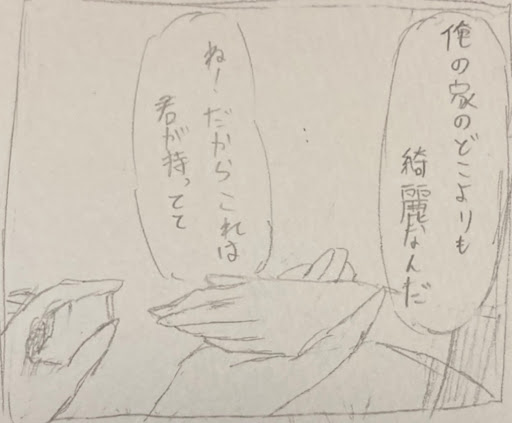 俺の家のどこよりも
綺麗なんだ
ね！だからこれは
君が持ってて